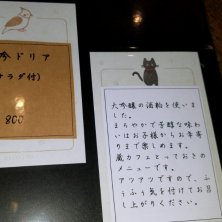 吟ドリア
サラダ付)
800
大吟醸の酒粕を使いま
した。
まろやかで芳醇な味わ
いはお子様からお年寄
りまで楽しめます。
蔵カフェとっておきの
メニューです。
アツアツですので、ふ
うふう気を付けてお召
し上がりください。